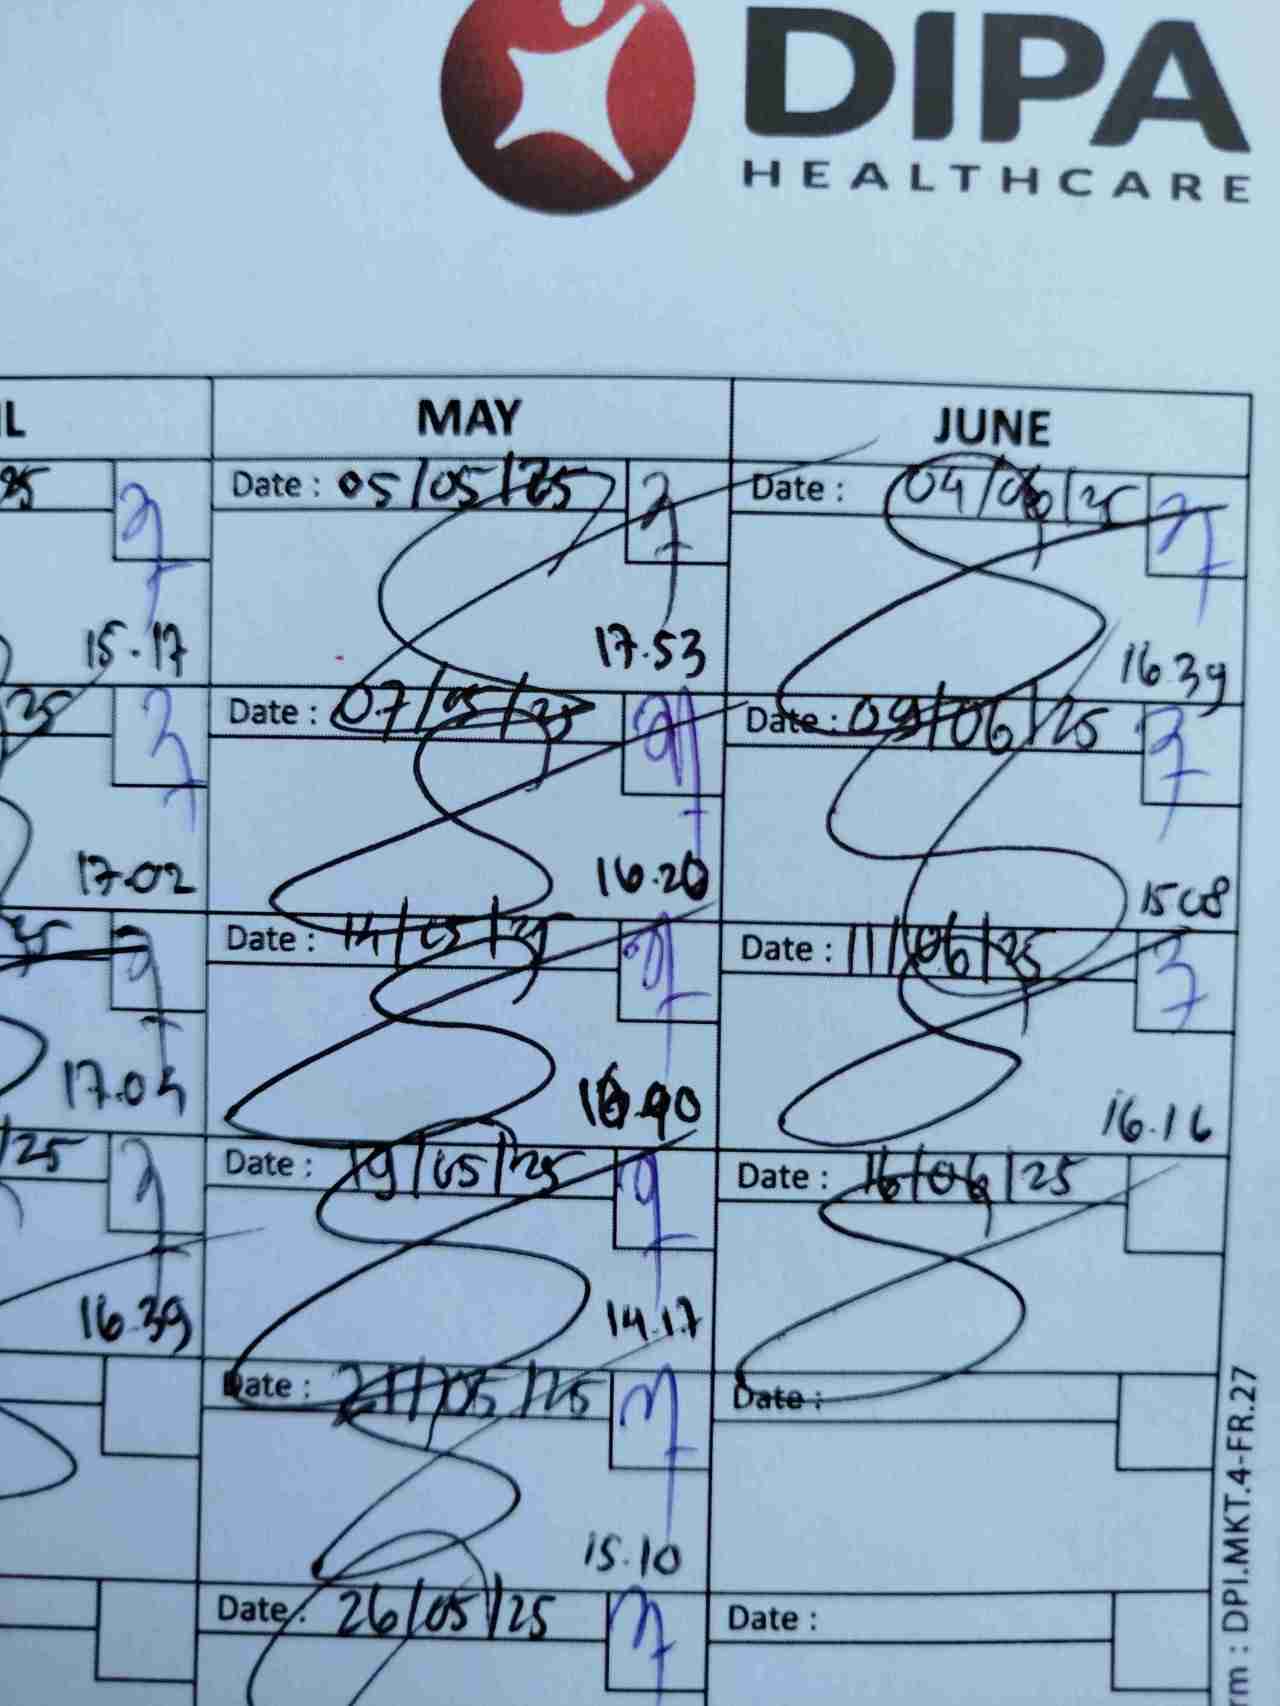 DIPA
HEALTHCARE
IL
MAY
JUNE
25
Date : 05/05/25
Date : 04/06/25
15.17
17.53
16.39
25
Date : 07/05/25
Date : 09/06/25
17.02
16.20
15.08
25
Date : 14/05/25
Date : 11/06/25
17.04
16.16
/25
Date : 19/05/25
Date : 16/06/25
16.39
14.17
Date : 21/05/25
Date :
15.10
Date : 26/05/25
Date :
rm : DPI.MKT.4-FR.27